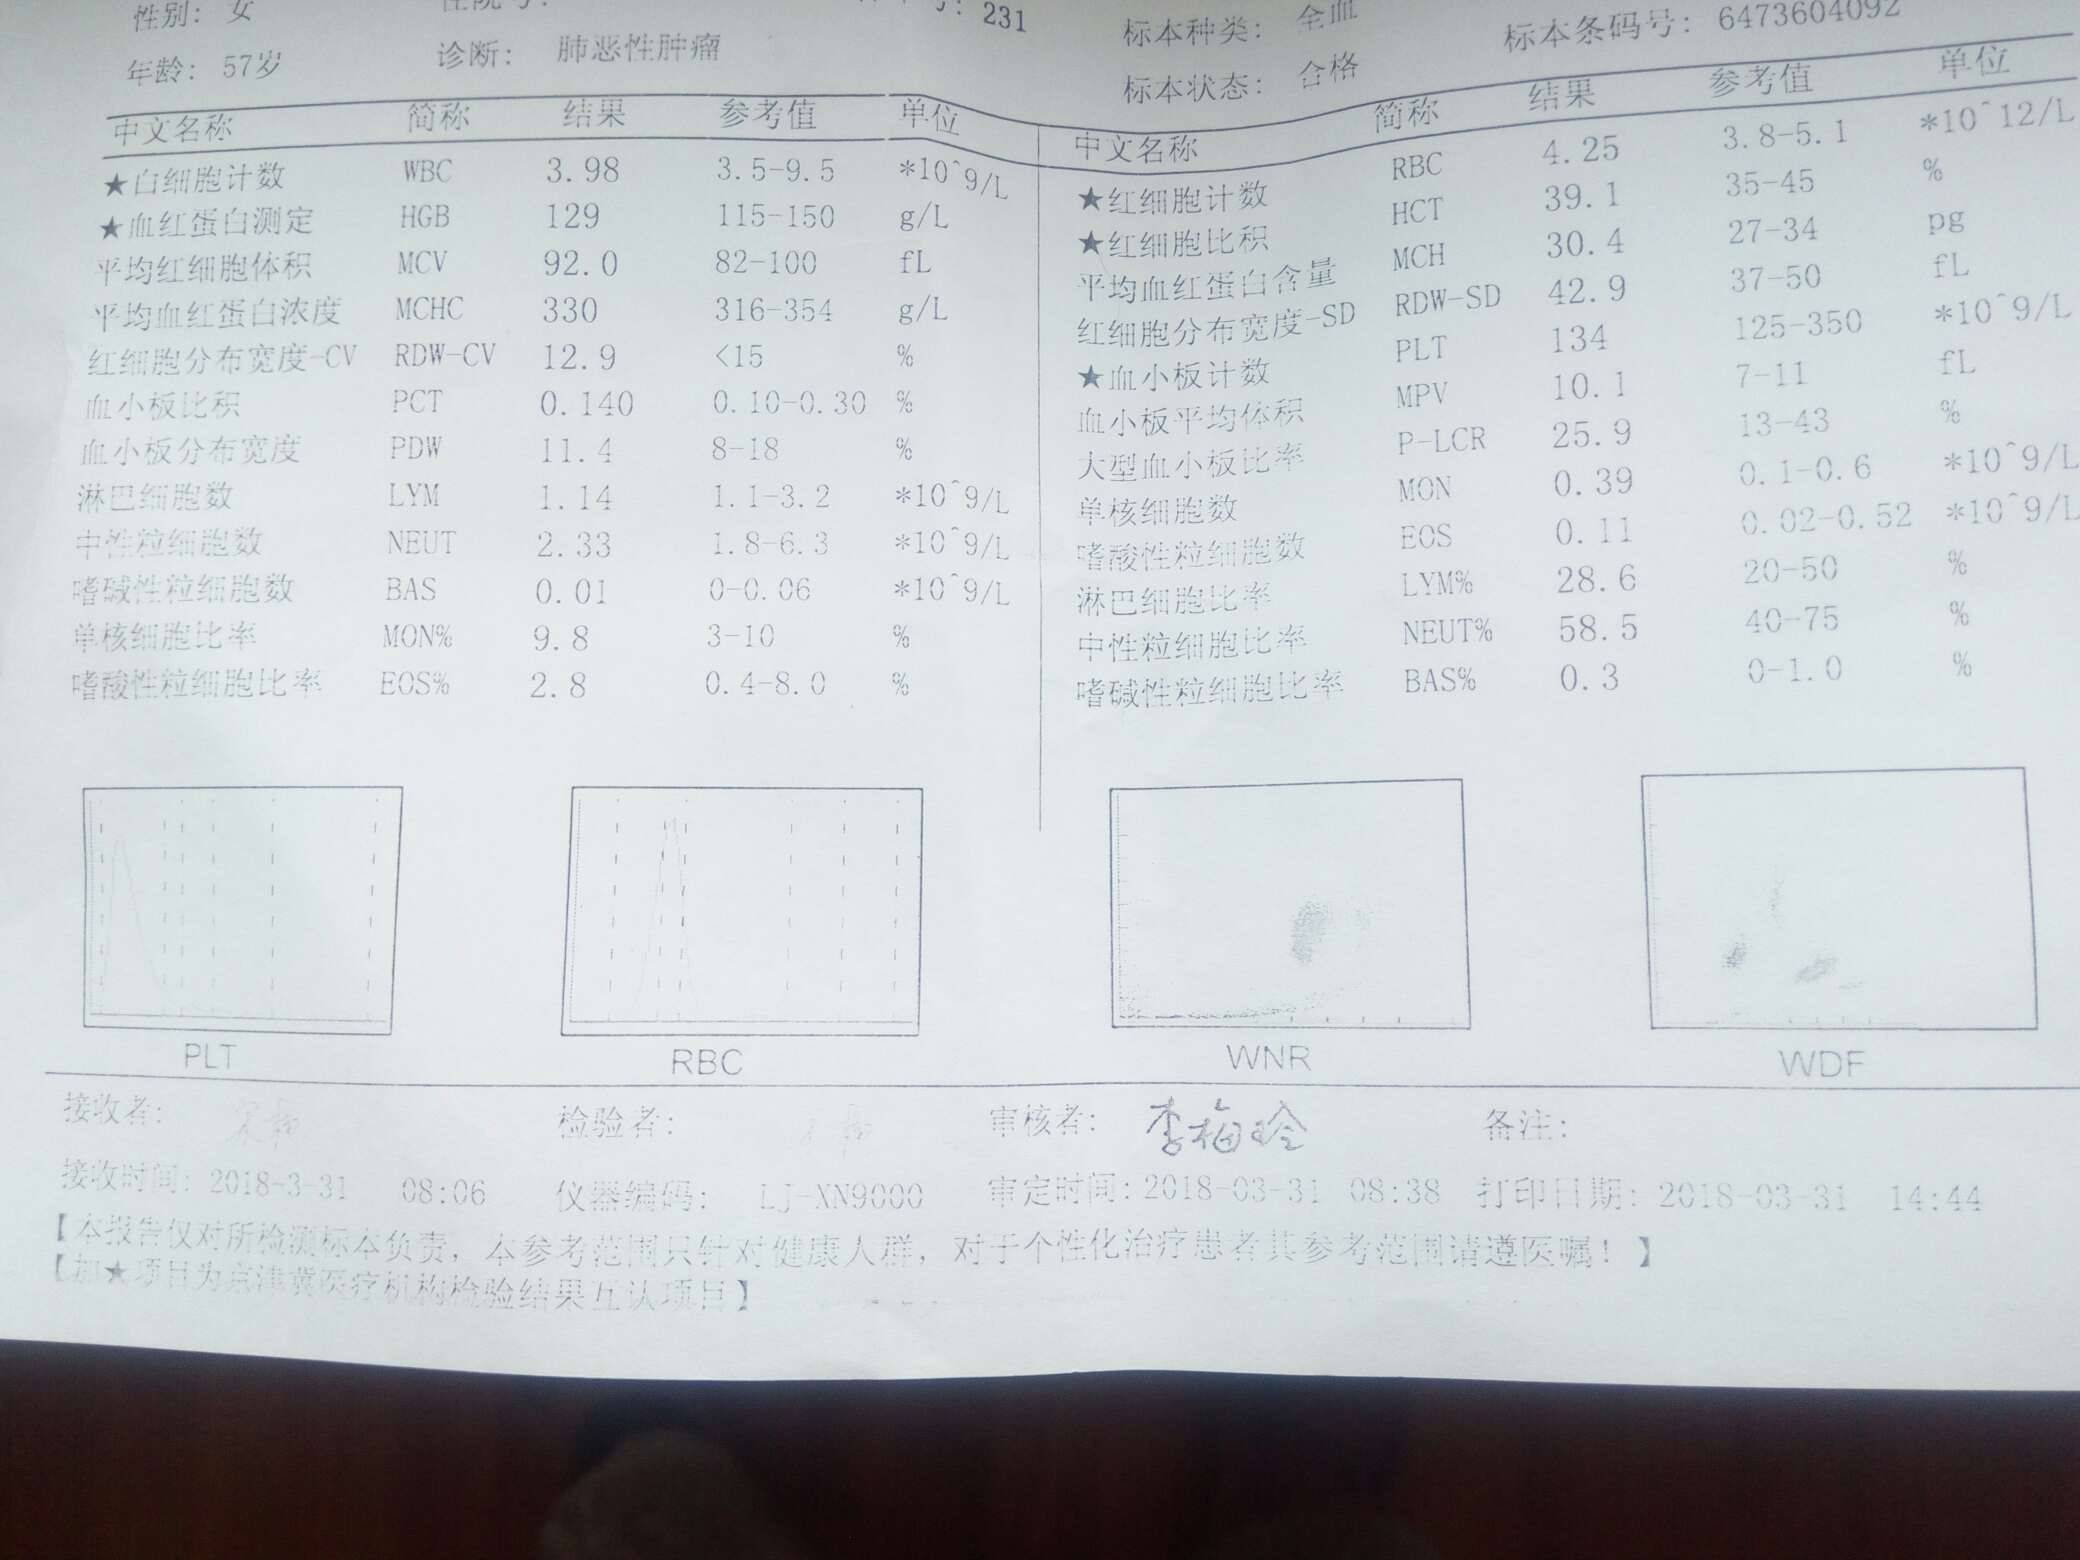 性别: 女
231
标本种类: 全血
标本条码号: 6473604092
年龄: 57岁
诊断: 肺恶性肿瘤
标本状态: 合格
中文名称 简称 结果 参考值 单位
★白细胞计数 WBC 3.98 3.5-9.5 *10^9/L
★血红蛋白测定 HGB 129 115-150 g/L
平均红细胞体积 MCV 92.0 82-100 fL
平均血红蛋白浓度 MCHC 330 316-354 g/L
红细胞分布宽度-CV RDW-CV 12.9 <15 %
血小板比积 PCT 0.140 0.10-0.30 %
血小板分布宽度 PDW 11.4 8-18 %
淋巴细胞数 LYM 1.14 1.1-3.2 *10^9/L
中性粒细胞数 NEUT 2.33 1.8-6.3 *10^9/L
嗜碱性粒细胞数 BAS 0.01 0-0.06 *10^9/L
单核细胞比率 MON% 9.8 3-10 %
嗜酸性粒细胞比率 EOS% 2.8 0.4-8.0 %
中文名称 简称 结果 参考值 单位
★红细胞计数 RBC 4.25 3.8-5.1 *10^12/L
★红细胞比积 HCT 39.1 35-45 %
平均血红蛋白含量 MCH 30.4 27-34 pg
红细胞分布宽度-SD RDW-SD 42.9 37-50 fL
★血小板计数 PLT 134 125-350 *10^9/L
血小板平均体积 MPV 10.1 7-11 fL
大型血小板比率 P-LCR 25.9 13-43 %
单核细胞数 MON 0.39 0.1-0.6 *10^9/L
嗜酸性粒细胞数 EOS 0.11 0.02-0.52 *10^9/L
淋巴细胞比率 LYM% 28.6 20-50 %
中性粒细胞比率 NEUT% 58.5 40-75 %
嗜碱性粒细胞比率 BAS% 0.3 0-1.0 %
PLT RBC WNR WDF
接收者: 检验者: 审核者: 李梅玲 备注:
接收时间: 2018-3-31 08:06 仪器编码: LJ-XN9000 审定时间: 2018-03-31 08:38 打印日期: 2018-03-31 14:44
【本报告仅对所检测标本负责，本参考范围只针对健康人群，对于个性化治疗患者其参考范围请遵医嘱！】
【加★项目为京津冀医疗机构检验结果互认项目】